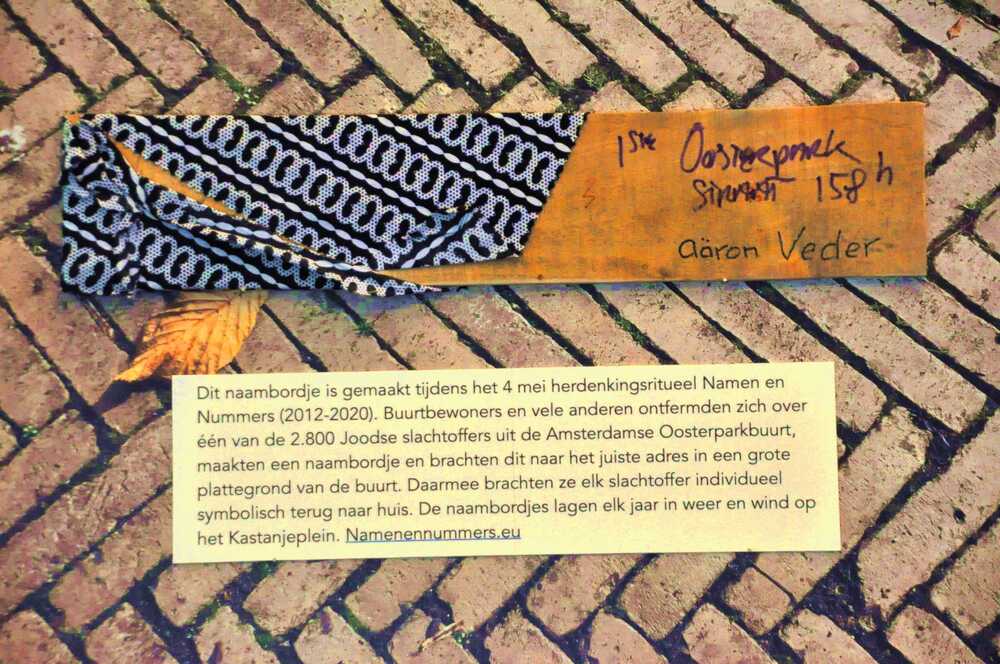 1ste Oosterpark
straat 158 h
Aäron Veder
Dit naambordje is gemaakt tijdens het 4 mei herdenkingsritueel Namen en
Nummers (2012-2020). Buurtbewoners en vele anderen ontfermden zich over
één van de 2.800 Joodse slachtoffers uit de Amsterdamse Oosterparkbuurt,
maakten een naambordje en brachten dit naar het juiste adres in een grote
plattegrond van de buurt. Daarmee brachten ze elk slachtoffer individueel
symbolisch terug naar huis. De naambordjes lagen elk jaar in weer en wind op
het Kastanjeplein. Namenennummers.eu